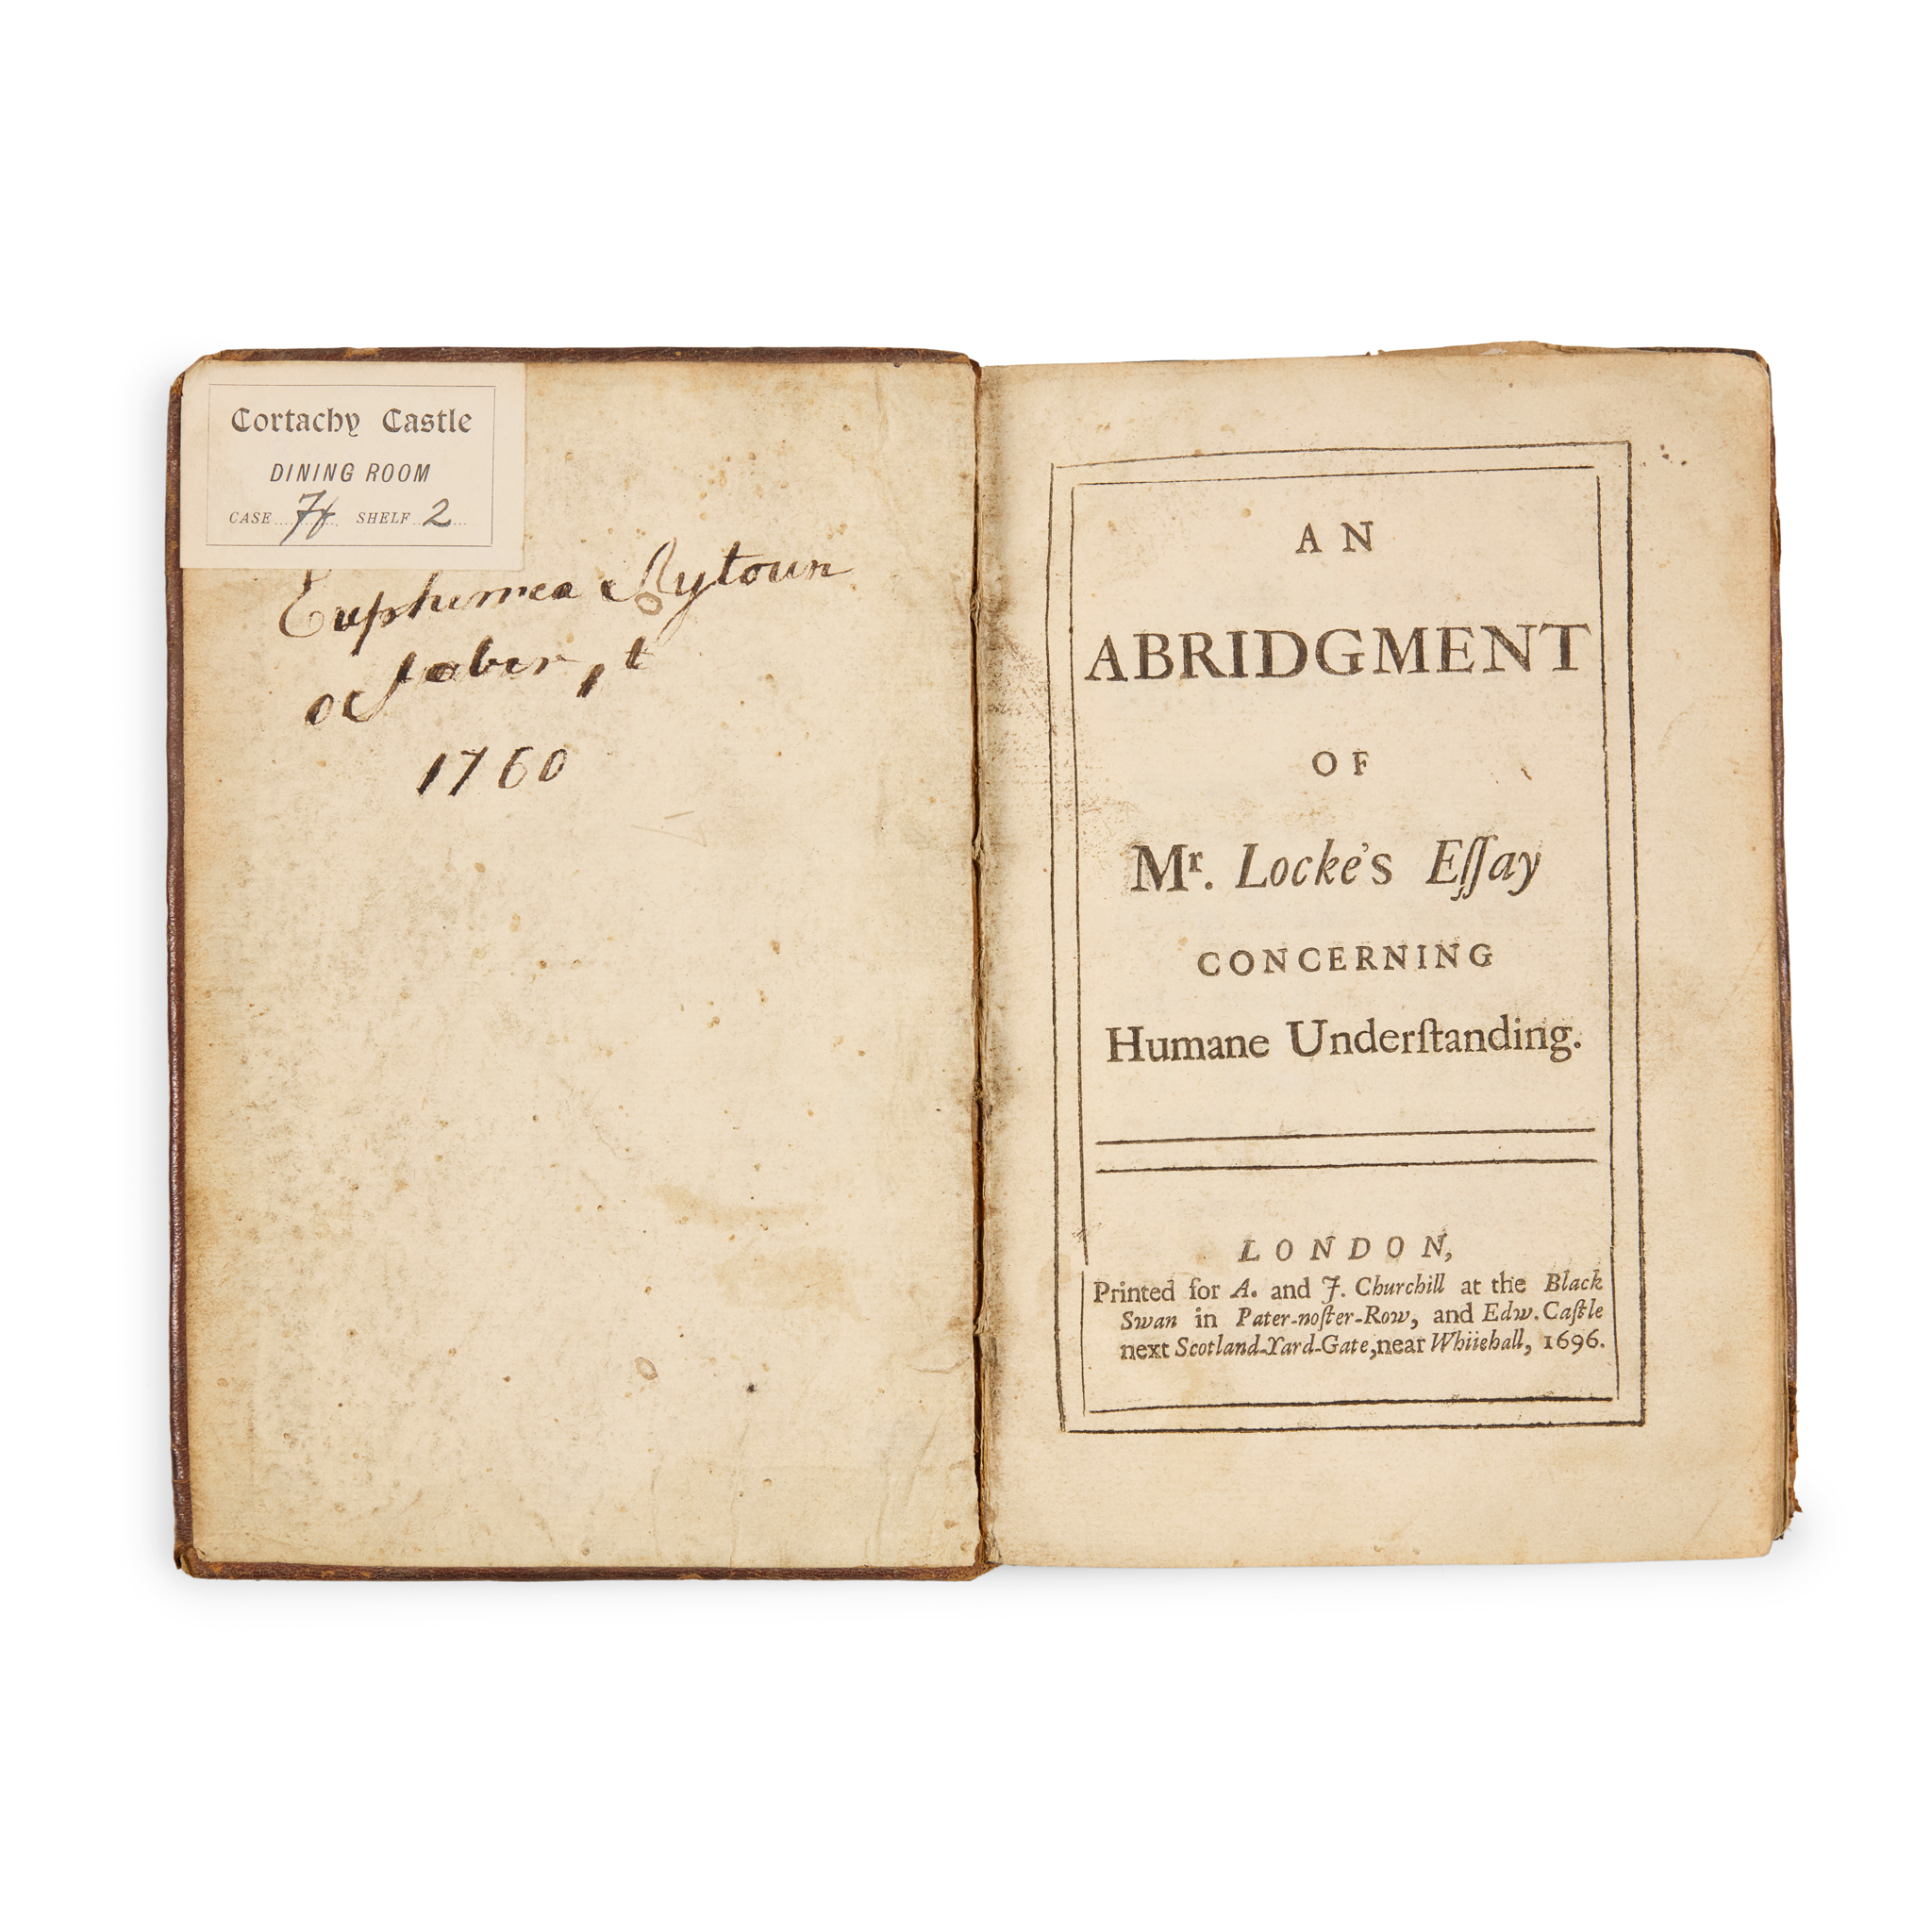 Cortachy Castle
DINING ROOM
CASE 7f SHELF 2
Euphemea Aytoun
october , t
1760
AN
ABRIDGMENT
OF
Mr. Locke's Eſſay
CONCERNING
Humane Underſtanding.
LONDON,
Printed for A. and J. Churchill at the Black
Swan in Pater-noſter-Row, and Edw. Caſtle
next Scotland-Yard-Gate, near Whiiehall, 1696.